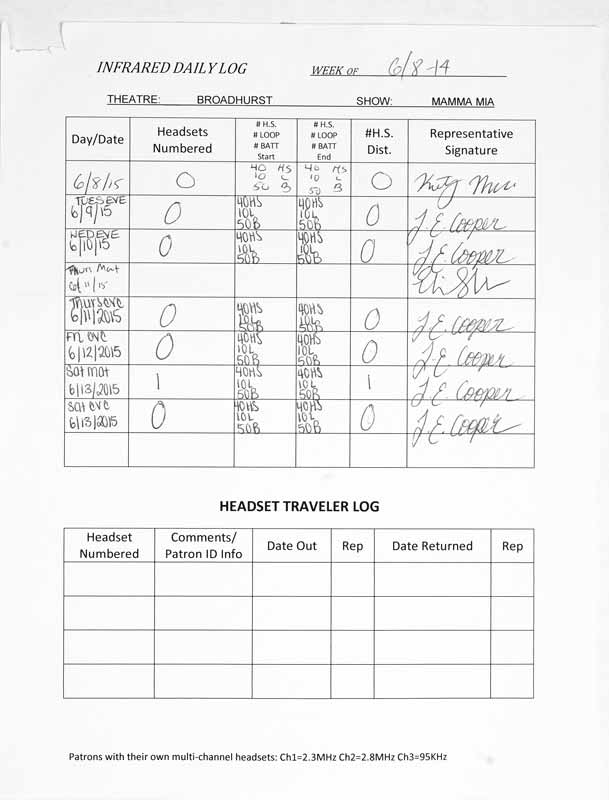 INFRARED DAILY LOG WEEK OF 6/8-14
THEATRE: BROADHURST SHOW: MAMMA MIA
Day/Date Headsets Numbered # H.S. # LOOP # BATT Start # H.S. # LOOP # BATT End #H.S. Dist. Representative Signature
6/8/15 0 40 HS 10 L 50 B 40 HS 10 L 50 B 0
TUES EVE 6/9/15 0 40HS 10L 50B 40HS 10L 50B 0 J.E. Cooper
WED EVE 6/10/15 0 40HS 10L 50B 40HS 10L 50B 0 J.E. Cooper
Thur. Mat 6/11/15
Thurs eve 6/11/2015 0 40HS 10L 50B 40HS 10L 50B 0 J.E. Cooper
Fri eve 6/12/2015 0 40HS 10L 50B 40HS 10L 50B 0 J.E. Cooper
Sat mat 6/13/2015 1 40HS 10L 50B 40HS 10L 50B 1 J.E. Cooper
Sat eve 6/13/2015 0 40HS 10L 50B 40HS 10L 50B 0 J.E. Cooper
HEADSET TRAVELER LOG
Headset Numbered Comments/ Patron ID Info Date Out Rep Date Returned Rep
Patrons with their own multi-channel headsets: Ch1=2.3MHz Ch2=2.8MHz Ch3=95KHz